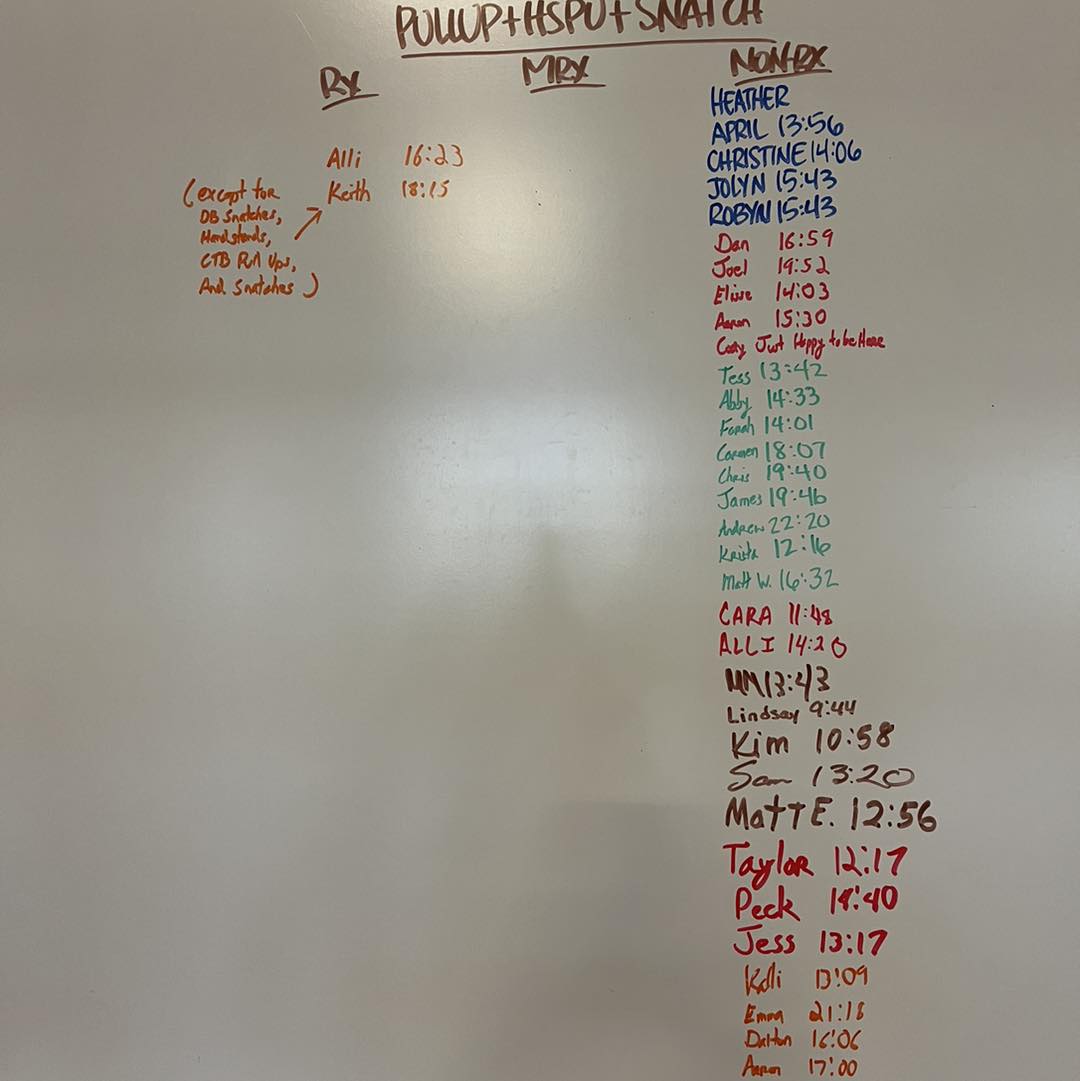 PULLUP+HSPU+SNATCH
RX
MRX
NON-RX
Alli 16:23
Keith 18:15
(except for
DB Snatches,
Handstands,
CTB Pull Ups,
And Snatches)
HEATHER
APRIL 13:56
CHRISTINE 14:06
JOLYN 15:43
ROBYN 15:43
Dan 16:59
Joel 19:52
Elisse 14:03
Aaron 15:30
Just Happy to be Here
Tess 13:42
Abby 14:33
Farah 14:01
Carmen 18:07
Chris 19:40
James 19:46
Andrew 22:20
Krista 12:16
Matt W. 16:32
CARA 11:48
ALLI 14:20
MM 13:43
Lindsay 9:44
Kim 10:58
Sam 13:20
Matt E. 12:56
Taylor 12:17
Peck 18:40
Jess 13:17
Kelli 13:09
Emma 21:18
Dalton 16:06
Aaron 17:00